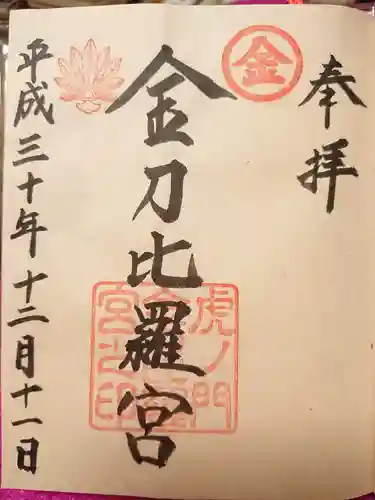 奉拝
金
金刀比羅宮
虎ノ門
宮之印
平成三十年十二月十一日